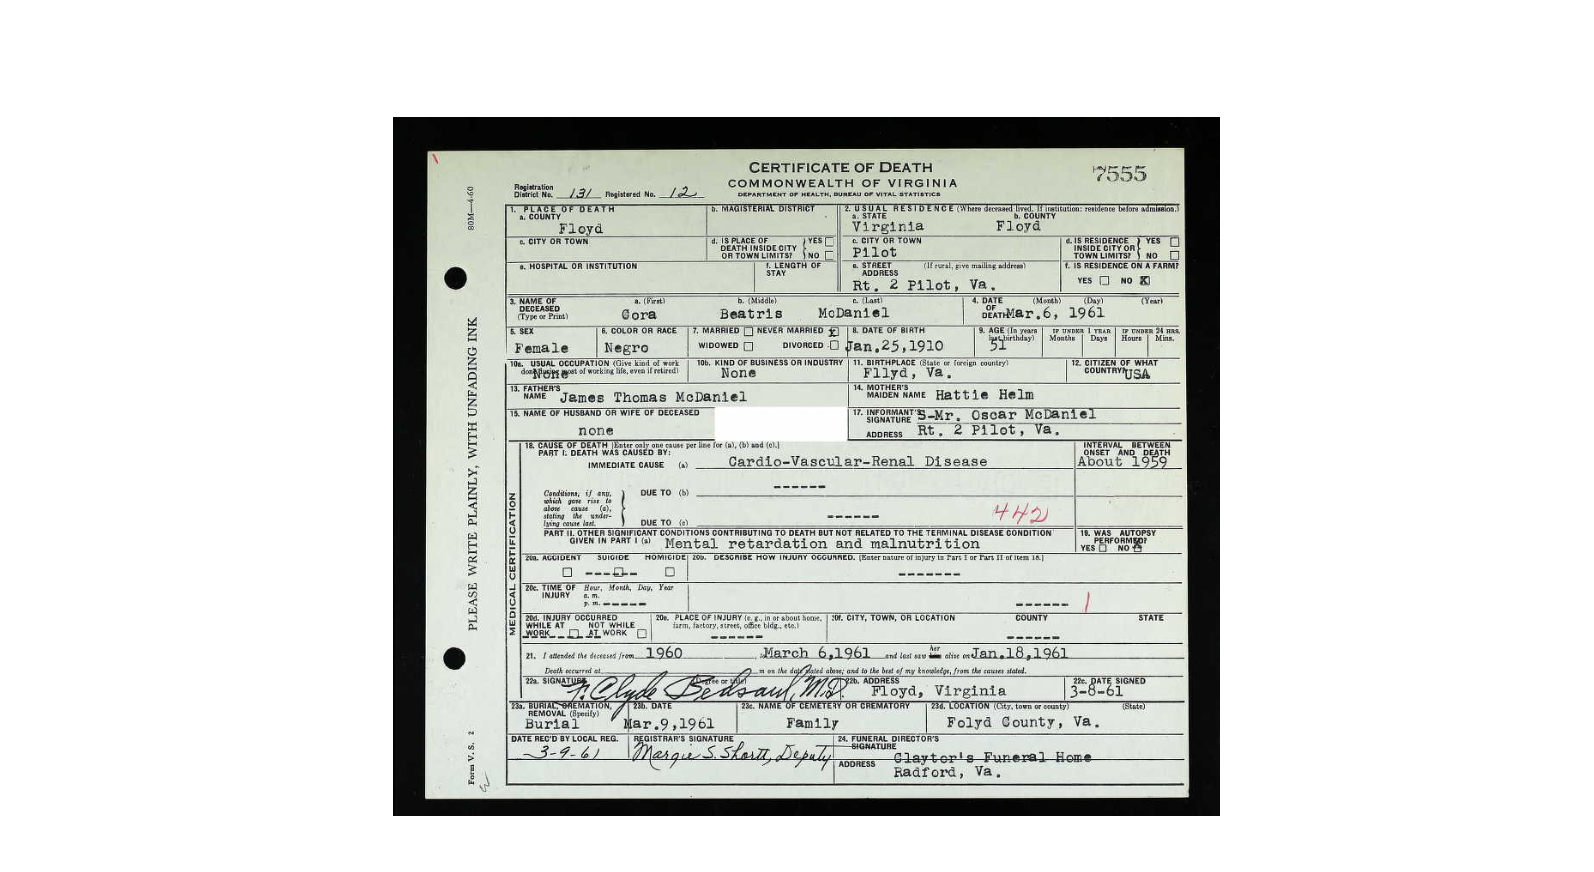 CERTIFICATE OF DEATH
COMMONWEALTH OF VIRGINIA
DEPARTMENT OF HEALTH, BUREAU OF VITAL STATISTICS
7555
Registration District No. 131 Registered No. 12
80M—4-60
PLEASE WRITE PLAINLY, WITH UNFADING INK
Form V. S. 2
1. PLACE OF DEATH
a. COUNTY
Floyd
b. MAGISTERIAL DISTRICT
2. USUAL RESIDENCE (Where deceased lived. If institution: residence before admission.)
a. STATE b. COUNTY
Virginia Floyd
c. CITY OR TOWN
d. IS PLACE OF DEATH INSIDE CITY OR TOWN LIMITS? YES NO
c. CITY OR TOWN
Pilot
d. IS RESIDENCE INSIDE CITY OR TOWN LIMITS? YES NO
e. HOSPITAL OR INSTITUTION
f. LENGTH OF STAY
e. STREET ADDRESS (If rural, give mailing address)
Rt. 2 Pilot, Va.
f. IS RESIDENCE ON A FARM?
YES NO X
3. NAME OF DECEASED (Type or Print)
a. (First) b. (Middle) c. (Last)
Cora Beatris McDaniel
4. DATE OF DEATH (Month) (Day) (Year)
Mar.6, 1961
5. SEX
Female
6. COLOR OR RACE
Negro
7. MARRIED NEVER MARRIED x
WIDOWED DIVORCED
8. DATE OF BIRTH
Jan.25,1910
9. AGE (In years last birthday)
51
IF UNDER 1 YEAR Months Days
IF UNDER 24 HRS. Hours Mins.
10a. USUAL OCCUPATION (Give kind of work done during most of working life, even if retired)
None
10b. KIND OF BUSINESS OR INDUSTRY
None
11. BIRTHPLACE (State or foreign country)
Fllyd, Va.
12. CITIZEN OF WHAT COUNTRY?
USA
13. FATHER'S NAME James Thomas McDaniel
14. MOTHER'S MAIDEN NAME Hattie Helm
15. NAME OF HUSBAND OR WIFE OF DECEASED
none
17. INFORMANT'S SIGNATURE S-Mr. Oscar McDaniel
ADDRESS Rt. 2 Pilot, Va.
MEDICAL CERTIFICATION
18. CAUSE OF DEATH [Enter only one cause per line for (a), (b) and (c).]
PART I. DEATH WAS CAUSED BY:
IMMEDIATE CAUSE (a) Cardio-Vascular-Renal Disease
INTERVAL BETWEEN ONSET AND DEATH
About 1959
Conditions, if any, which gave rise to above cause (a), stating the underlying cause last.
DUE TO (b) ------
DUE TO (c) ------
442
PART II. OTHER SIGNIFICANT CONDITIONS CONTRIBUTING TO DEATH BUT NOT RELATED TO THE TERMINAL DISEASE CONDITION
GIVEN IN PART I (a) Mental retardation and malnutrition
19. WAS AUTOPSY PERFORMED?
YES NO X
20a. ACCIDENT SUICIDE HOMICIDE
20b. DESCRIBE HOW INJURY OCCURRED. (Enter nature of injury in Part I or Part II of item 18.)
-------
20c. TIME OF INJURY Hour, Month, Day, Year
a. m.
p. m. -----
------ 1
20d. INJURY OCCURRED
WHILE AT WORK NOT WHILE AT WORK
20e. PLACE OF INJURY (e. g., in or about home, farm, factory, street, office bldg., etc.)
------
20f. CITY, TOWN, OR LOCATION COUNTY STATE
------
21. I attended the deceased from 1960 to March 6,1961 and last saw her alive on Jan.18,1961
Death occurred at m on the date stated above; and to the best of my knowledge, from the causes stated.
22a. SIGNATURE (Degree or title)
F. Clyde Bedsaul, M.D.
22b. ADDRESS
Floyd, Virginia
22c. DATE SIGNED
3-8-61
23a. BURIAL, CREMATION, REMOVAL (Specify)
Burial
23b. DATE
Mar.9,1961
23c. NAME OF CEMETERY OR CREMATORY
Family
23d. LOCATION (City, town or county) (State)
Folyd County, Va.
DATE REC'D BY LOCAL REG.
3-9-61
REGISTRAR'S SIGNATURE
Margie S. Shortt, Deputy
24. FUNERAL DIRECTOR'S SIGNATURE
ADDRESS
Claytor's Funeral Home
Radford, Va.